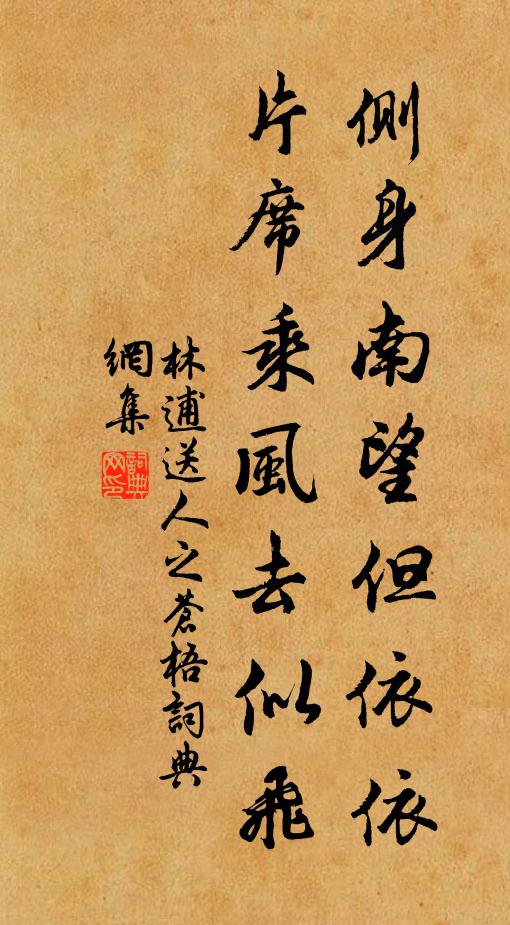 側身南望但依依
片席乘風去似飛
林逋送人之蒼梧詞典
網集
詞典
网印